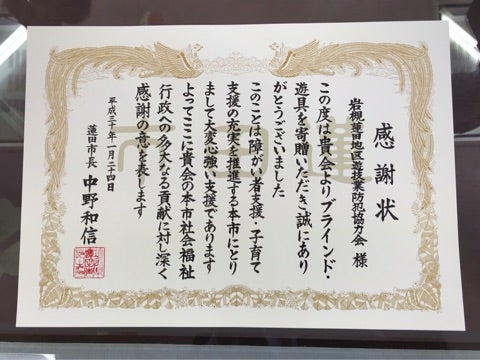 感謝状
岩槻蓮田地区遊技業防犯協力会 様
この度は貴会よりブラインド・
遊具を寄贈いただき誠にあり
がとうございました
このことは障がい者支援・子育て
支援の充実を推進する本市にとり
まして大変心強い支援であります
よってここに貴会の本市社会福祉
行政への多大なる貢献に対し深く
感謝の意を表します
平成三十年一月二十四日
蓮田市長 中野和信